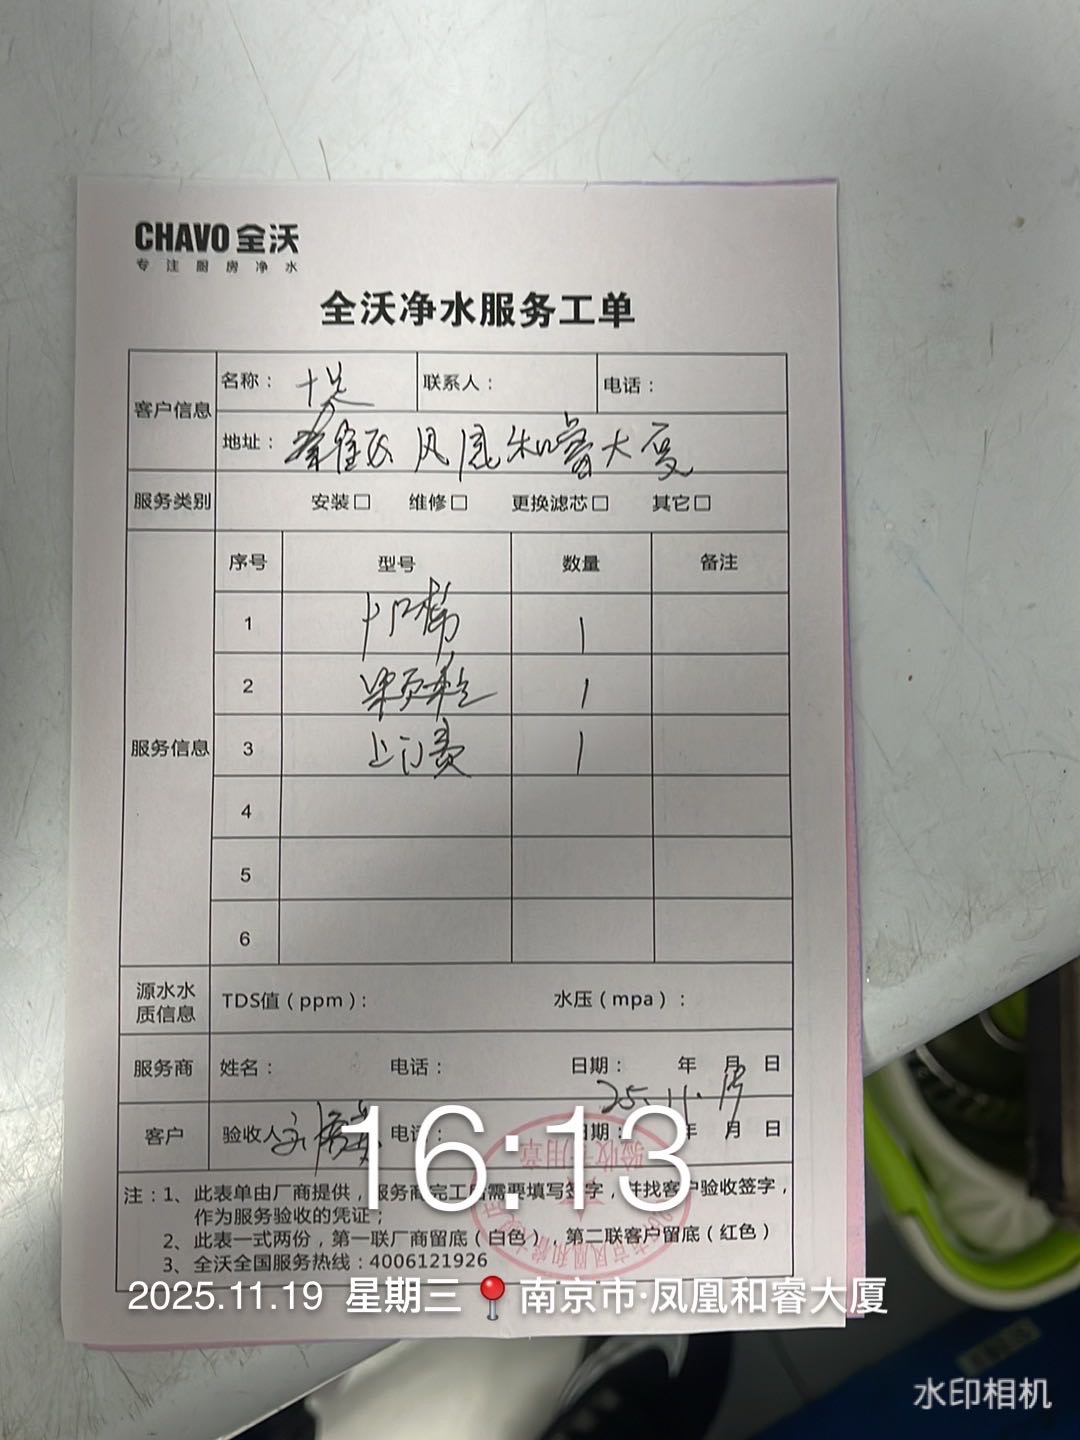 CHAVO 全沃
专注厨房净水
全沃净水服务工单
客户信息 名称： 联系人： 电话：
地址： 凤凰和睿大厦
服务类别 安装□ 维修□ 更换滤芯□ 其它□
服务信息 序号 型号 数量 备注
1 1
2 颗粒 1
3 上门费 1
4
5
6
源水水质信息 TDS值（ppm）： 水压（mpa）：
服务商 姓名： 电话： 日期： 年 月 日
25.11.19
客户 验收人 电话： 日期： 年 月 日
16:13
注：1、此表单由厂商提供，服务商完工后需要填写签字，并找客户验收签字，
作为服务验收的凭证；
2、此表一式两份，第一联厂商留底（白色），第二联客户留底（红色）
3、全沃全国服务热线：4006121926
验收专用章
2025.11.19 星期三 南京市·凤凰和睿大厦
水印相机